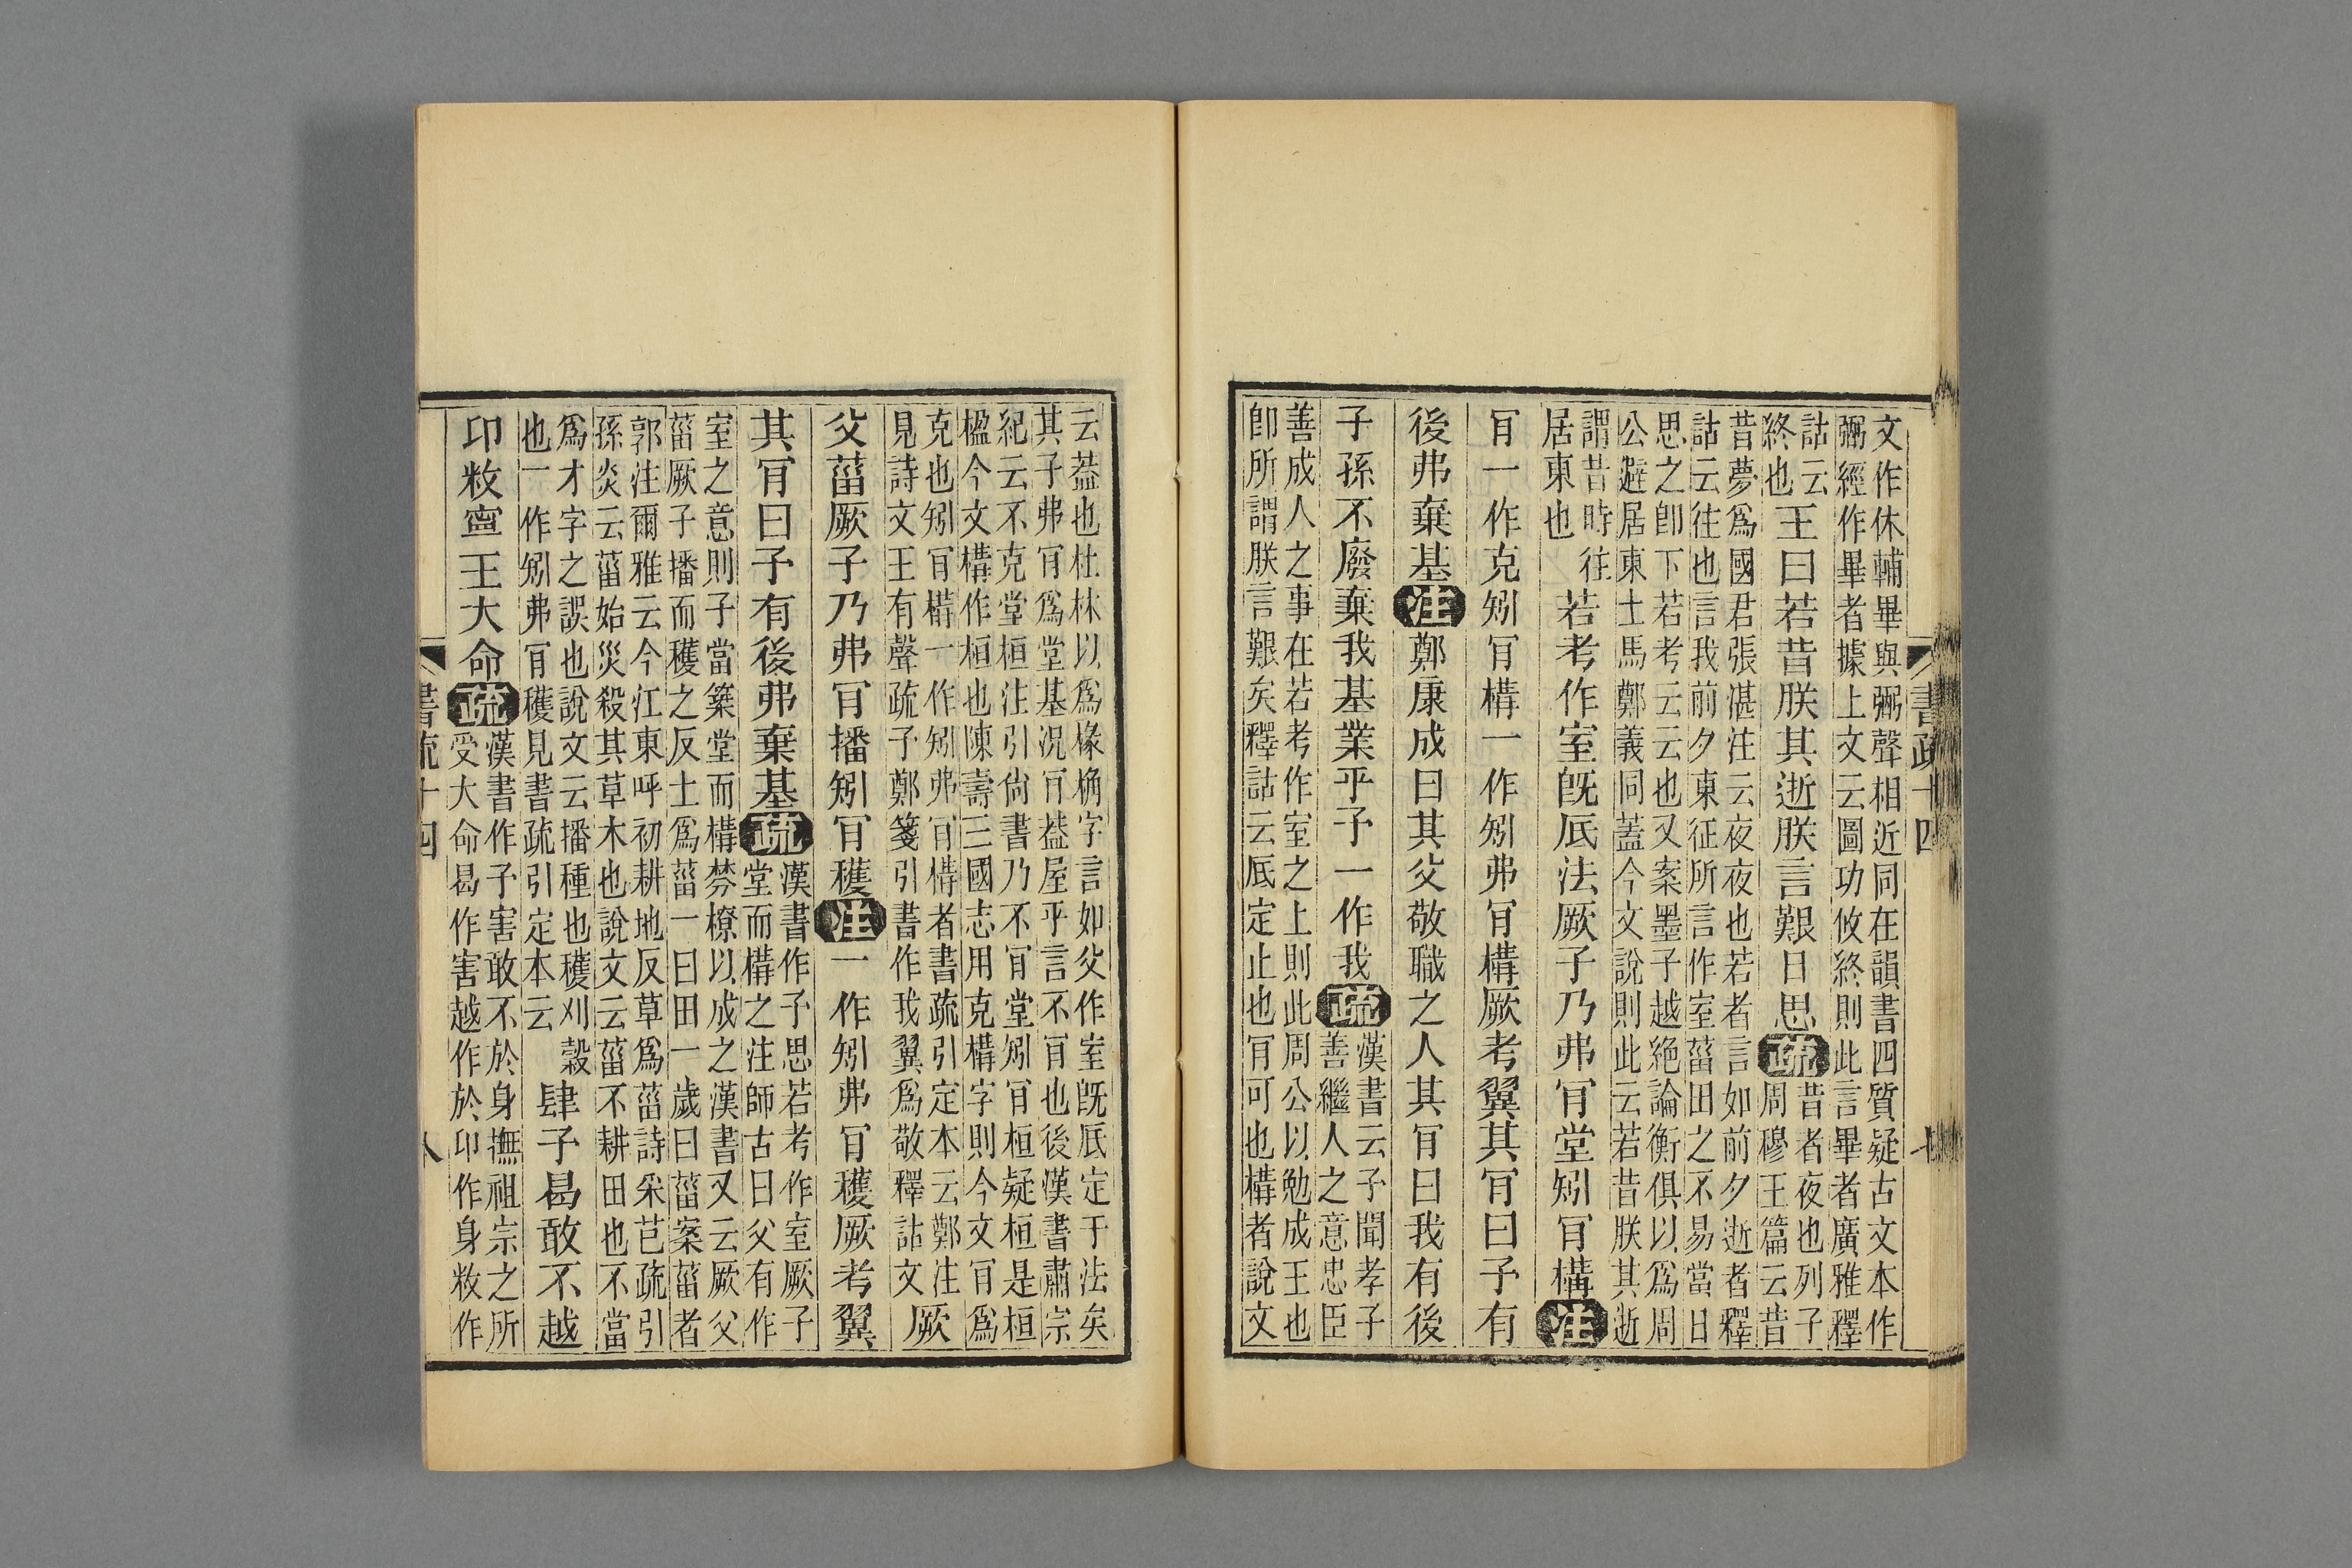 文作休輔畢與弼聲相近同在韻書四質疑古文本作
弼經作畢者據上文云圖功攸終則此言畢者廣雅釋
詁云
終也
王曰若昔朕其逝朕言艱日思
疏
昔者夜也列子
周穆王篇云昔
昔夢爲國君張湛注云夜夜也若者言如前夕逝者釋
詁云往也言我前夕東征所言作室菑田之不易當日
思之卽下若考云云也又案墨子越絕論衡俱以爲周
公避居東土馬鄭義同蓋今文說則此云若昔朕其逝
謂昔時往
居東也
若考作室旣厎法厥子乃弗肎堂矧肎構
注
肎一作克矧肎構一作矧弗肎構厥考翼其肎曰予有
後弗棄基
注
鄭康成曰其父敬職之人其肎曰我有後
子孫不廢棄我基業乎予一作我
疏
漢書云予聞孝子
善繼人之意忠臣
善成人之事在若考作室之上則此周公以勉成王也
卽所謂朕言艱矣釋詁云厎定止也肎可也構者說文
云葢也杜林以爲椽桷字言如父作室旣厎定于法矣
其子弗肎爲堂基況肎葢屋乎言不肎也後漢書肅宗
紀云不克堂桓注引尙書乃不肎堂矧肎桓疑桓是桓
楹今文構作桓也陳壽三國志用克構字則今文肎爲
克也矧肎構一作矧弗肎構者書疏引定本云鄭注
見詩文王有聲疏子鄭箋引書作我翼爲敬釋詁文
厥
父菑厥子乃弗肎播矧肎穫
注
一作矧弗肎穫厥考翼
其肎曰予有後弗棄基
疏
漢書作予思若考作室厥子
堂而構之注師古曰父有作
室之意則子當築堂而構棼橑以成之漢書又云厥父
菑厥子播而穫之反土爲菑一曰田一歲曰菑案菑者
郭注爾雅云今江東呼初耕地反草爲菑詩采芑疏引
孫炎云菑始災殺其草木也說文云菑不耕田也不當
爲才字之誤也說文云播種也穫刈穀
也一作矧弗肎穫見書疏引定本云
肆予曷敢不越
卬敉寍王大命
疏
漢書作予害敢不於身撫祖宗之所
受大命曷作害越作於卬作身敉作
書疏十四
八